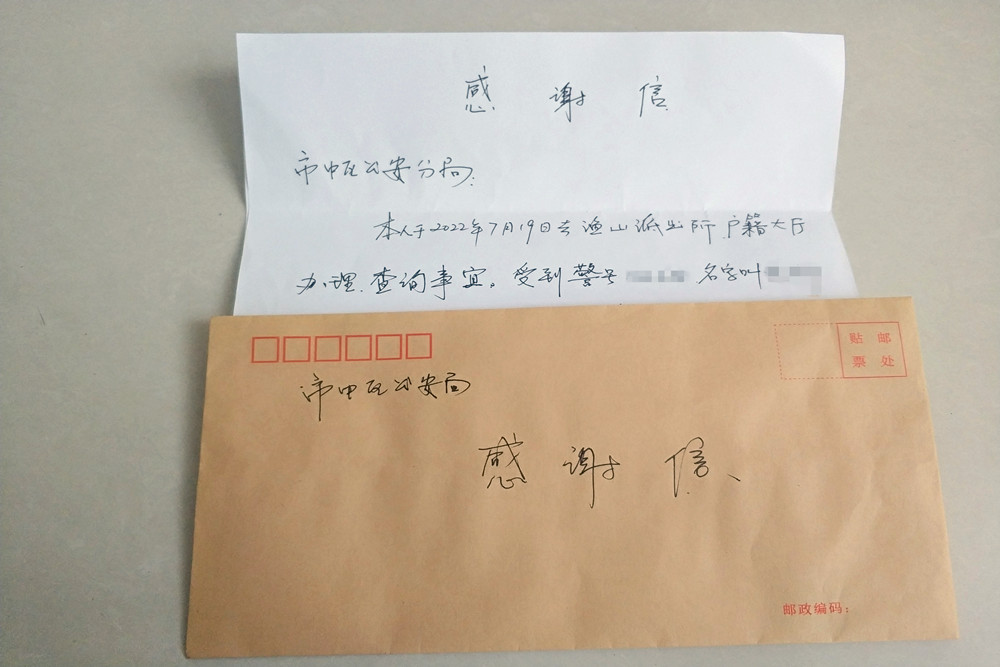 感谢信
市中区公安分局:
本人于2022年7月19日去渔山派出所户籍大厅
办理查询事宜。受到警号 名字叫
贴邮
票处
市中区公安局
感谢信、
邮政编码: